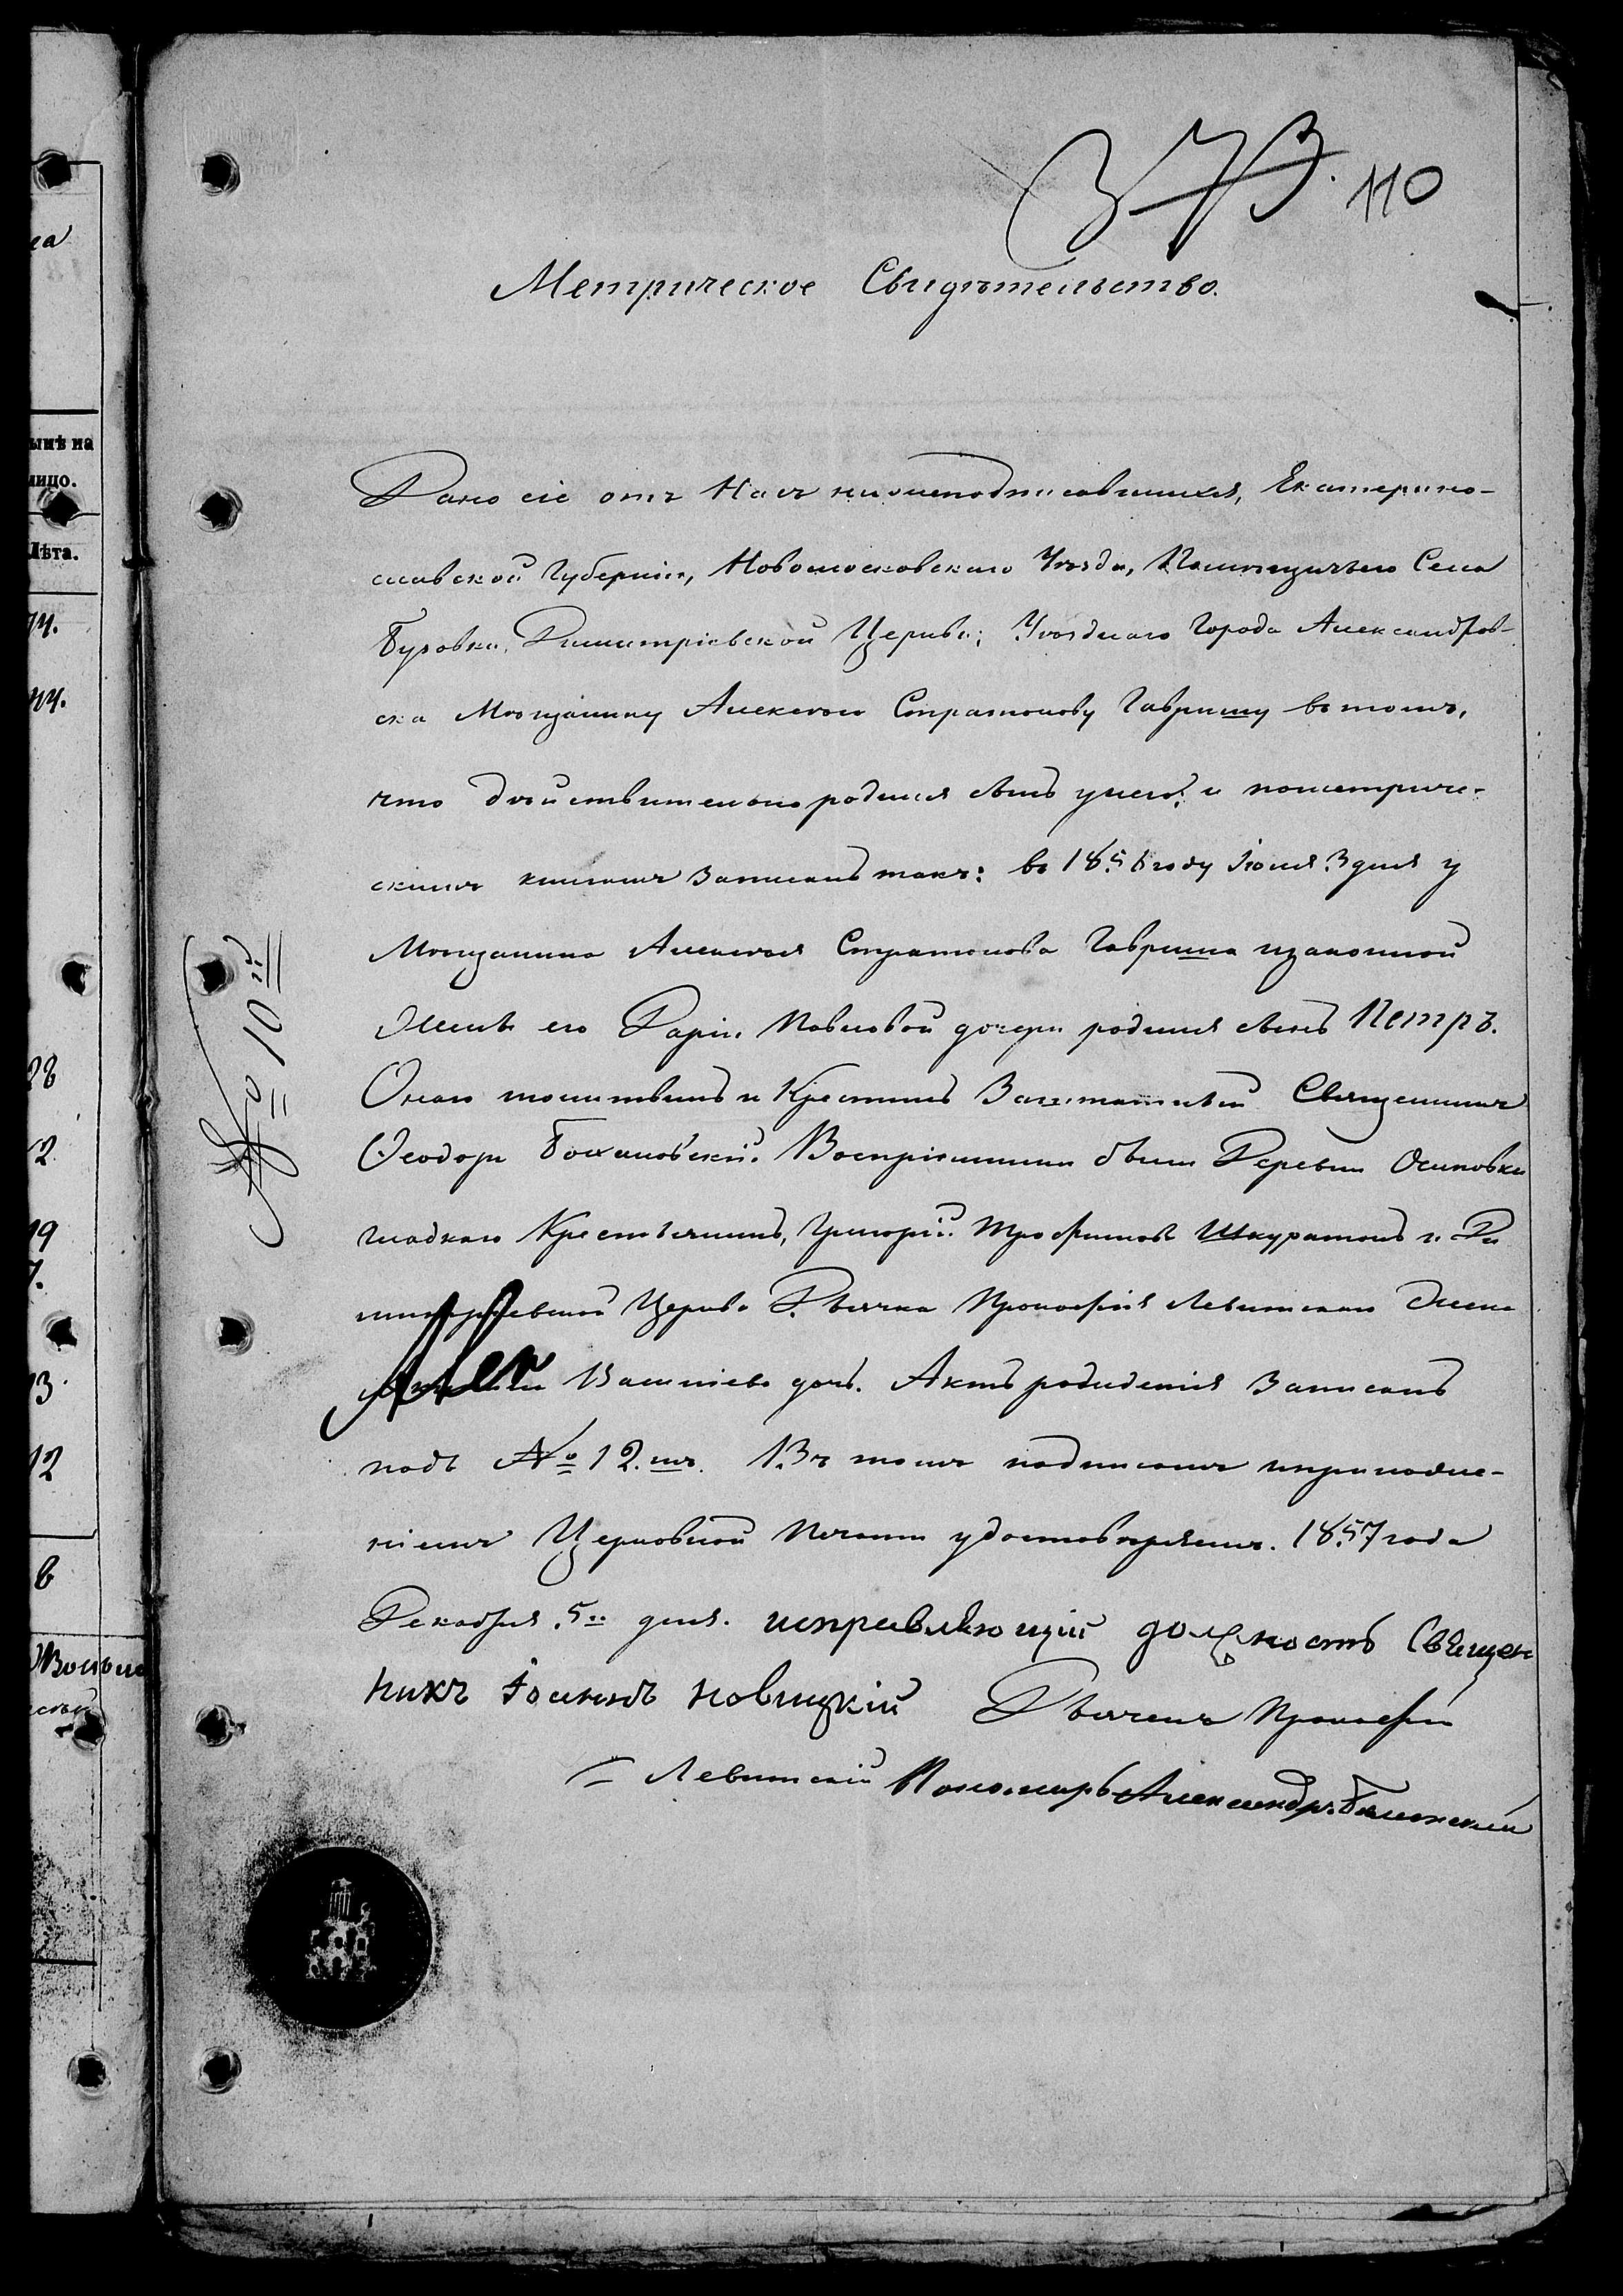 373. 110
Метрическое Свидѣтельство.
Дано сіе отъ Насъ нижеподписавшихся, Екатерино-
славской Губерніи, Новомосковскаго Уѣзда, Помѣщичьего Села
Бузовки, Димитріевской Церкви; Уѣзднаго Города Александров-
ска Мѣщанину Алексѣю Стратонову Гавришу въ томъ,
что дѣйствительно родился сынъ у него; и пометриче-
скимъ книгамъ Записанъ такъ: въ 1856 году Іюля 3 дня у
Мѣщанина Алексѣя Стратонова Гавриша изаконной
Жены его Даріи Павловой дочери родился сынъ Петръ.
Онаго молитвилъ и Крестилъ Заштатный Священникъ
Ѳеодоръ Бохановскій. Воспріемники были Деревни Осиповки
Крестьянинъ, Григорій Трофимовъ Шкуратовъ и Ди
митріевской Церкви Дьячка Прокофія Левитскаго Жена
Васильева дочь. Актъ рождения Записанъ
подъ № 12.мъ. Въ томъ подписомъ иприложе-
ніемъ Церковной Печати удостовѣряемъ. 1857 года
Декабря 5го дня. исправляющій должность Священ
никъ Іоаннъ новицкій Дьячекъ Прокофій
Левитскій Пономарь Александръ
№ 10й
ынѣ на
лицо.
Лѣта.